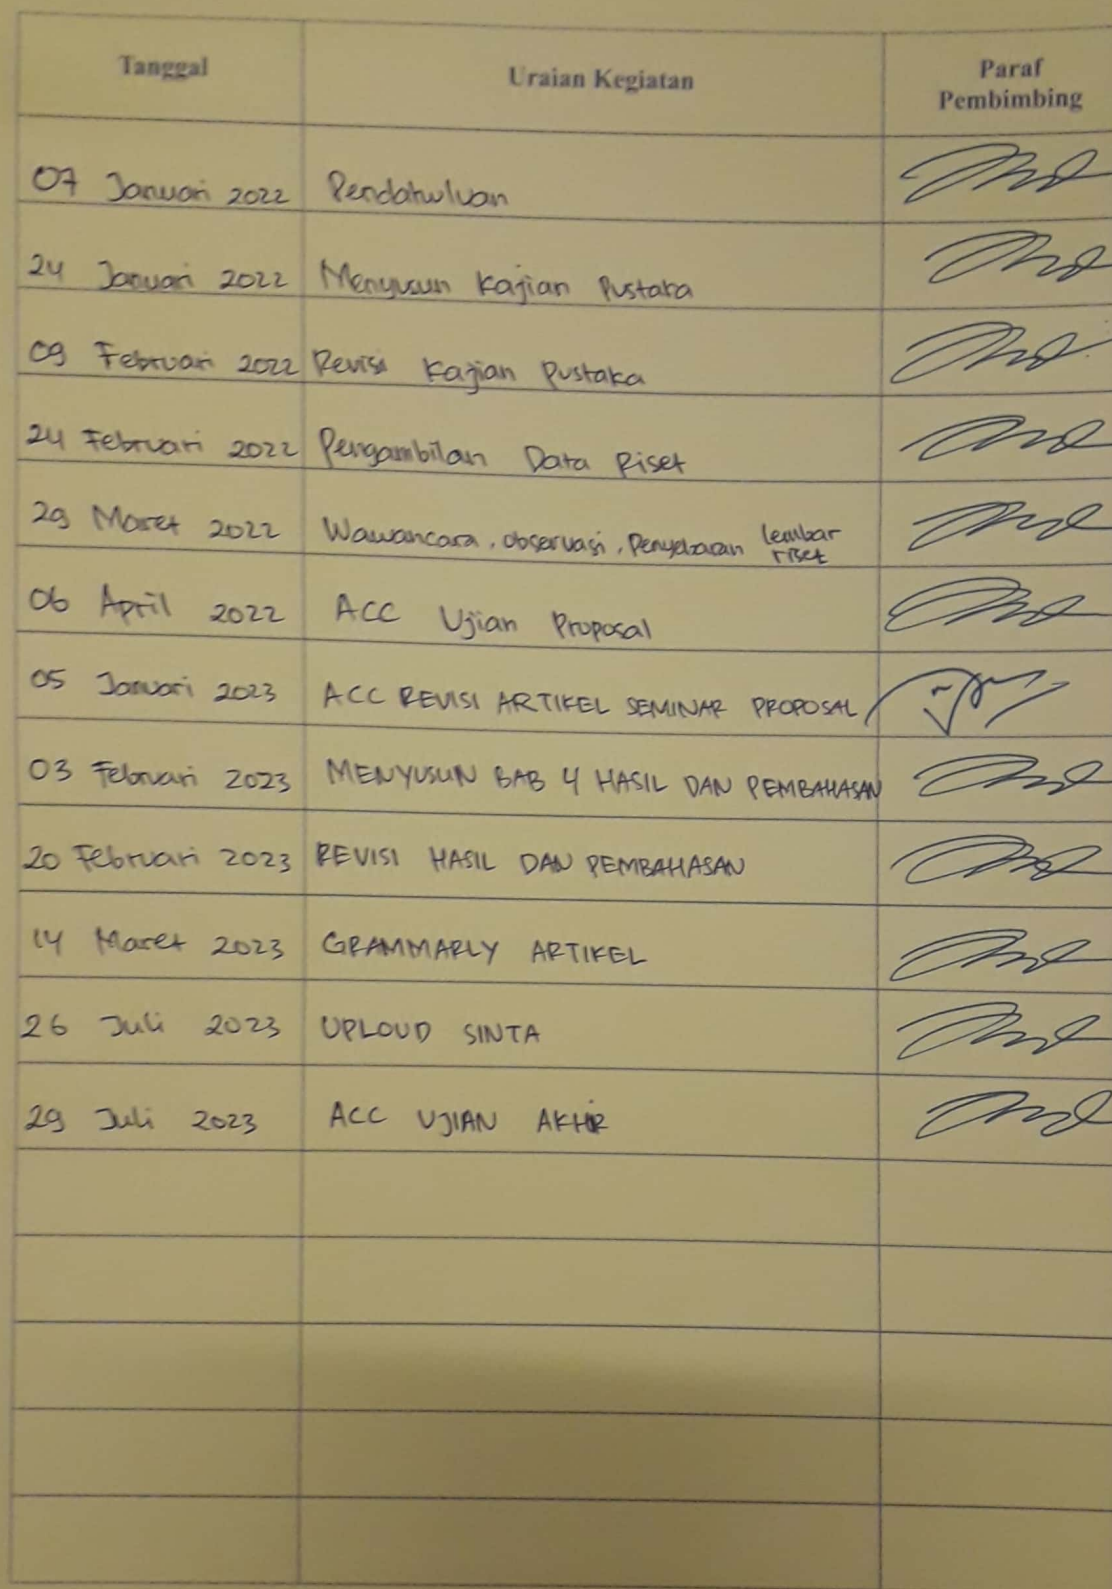 Tanggal Uraian Kegiatan Paraf
Pembimbing
07 Januari 2022 Pendahuluan
24 Januari 2022 Menyusun Kajian Pustaka
09 Februari 2022 Revisi Kajian Pustaka
24 Februari 2022 Pengambilan Data Riset
29 Maret 2022 Wawancara, observasi, Penyebaran lembar
riset
06 April 2022 ACC Ujian Proposal
05 Januari 2023 ACC REVISI ARTIKEL SEMINAR PROPOSAL
03 Februari 2023 MENYUSUN BAB 4 HASIL DAN PEMBAHASAN
20 Februari 2023 REVISI HASIL DAN PEMBAHASAN
14 Maret 2023 GRAMMARLY ARTIKEL
26 Juli 2023 UPLOUD SINTA
29 Juli 2023 ACC UJIAN AKHIR